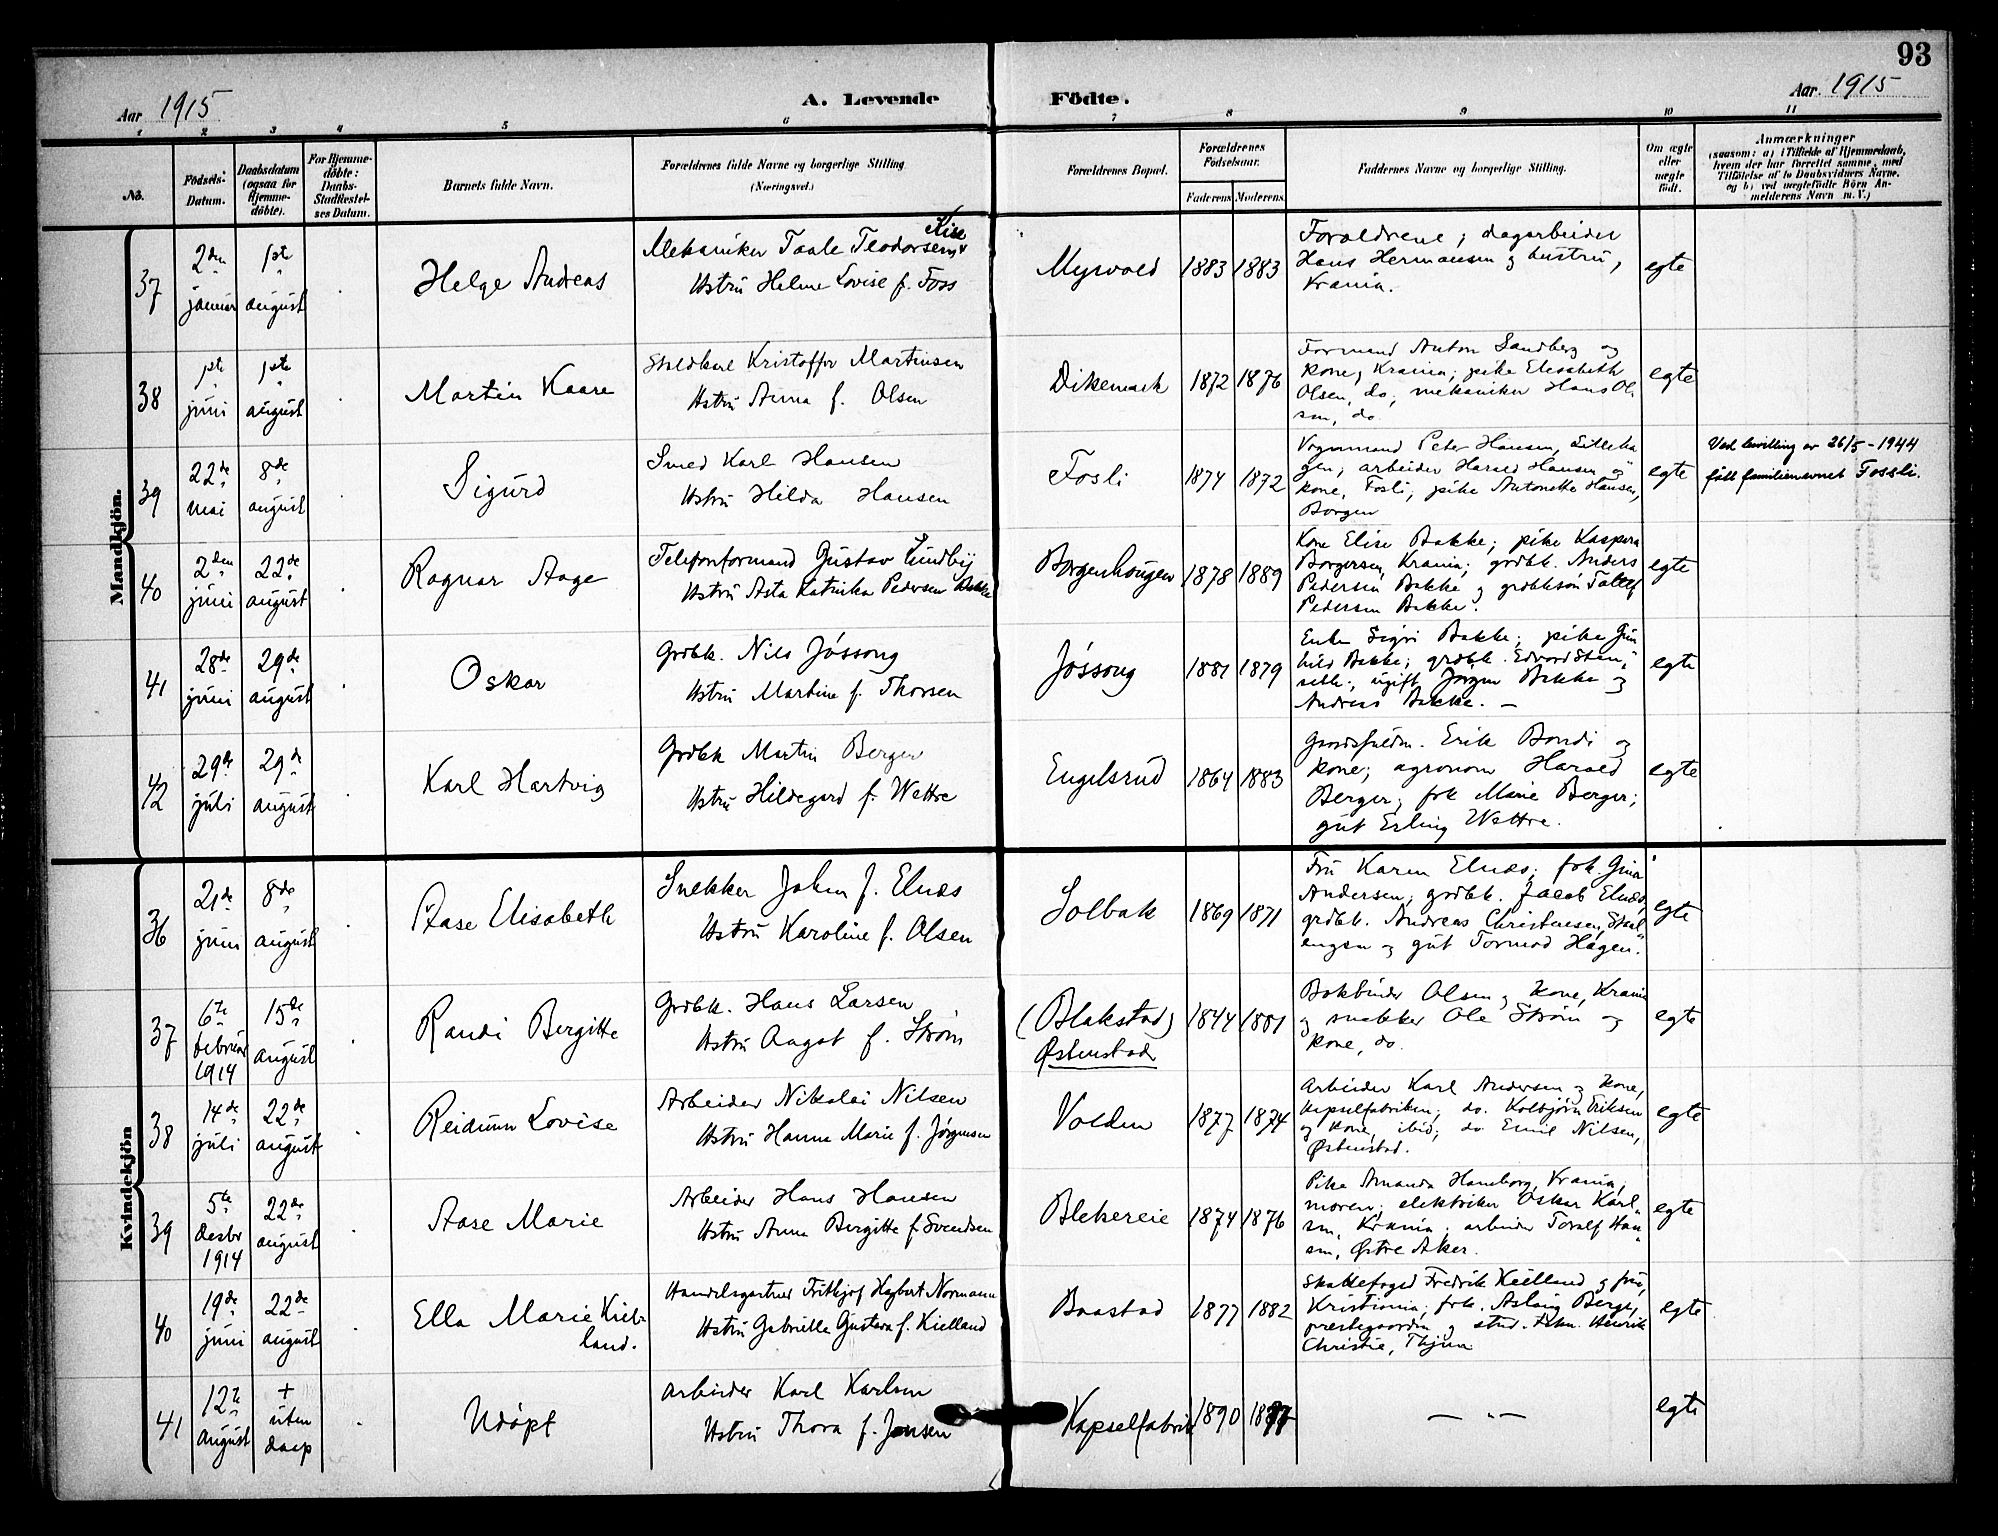 93
Aar 1915
A. Levende
Födte.
Aar. 1915
1 2 3 4 5 6 7 8 9 10 11
No.
Födsels-
Datum.
Daabsdatum
(ogsaa for
Hjemme-
döbte).
For Hjemme-
döbte:
Daabs-
Stadfæstel-
ses Datum.
Barnets fulde Navn.
Forældrenes fulde Navne og borgerlige Stilling
(Næringsvei.)
Forældrenes Bopæl.
Forældrenes
Födselsaar.
Faderens
Moderens
Faddernes Navne og borgerlige Stilling.
Om ægte
eller
uægte
født.
Anmærkninger
(saasom: a) i Tilfælde af Hjemmedaab,
hvem der har forrettet samme, med
Tilföielse af to Daabsvidners Navne.
og b) ved uægtefödte Börn An-
melderens Navn m. V.)
Mandkjön.
37
2den
januar
1ste
august
Helge Andreas
Mekaniker Taale Teodorsen Kise
Hstrú Helene Lovise f. Foss
Myrvold
1883
1883
Foreldrene; dagarbeider
Hans Hermansen og hustrú,
Krania.
egte
38
1ste
júni
1ste
august
Martin Kaare
Kristoffer Martinsen
Hstrú Anna f. Olsen
Dikemark
1872
1876
Formand Anton Sandberg og
kone, Krania; pike Elisabeth
Olsen, do; mekaniker Hans Ol
sen, do
egte
39
22de
mai
8de
august
Sigúrd
Smed Karl Hansen
Hstrú Hilda Hansen
Fosli
1874
1872
Vognmand Peter Hansen, Lilleha
gen; arbeider Harald Hansen og
kone, Fosli; pike Antonette Hansen,
Borgen
egte
Ved bevilling av 26/5-1944
fått familienavnet Fossli.
40
2den
júni
22de
august
Ragnar Aage
Telefonformand Gustav Lundby
Hstrú Asta Katinka Pedersen Bakke
Borgenhaúgen
1878
1889
Kone Elise Bakke; pike Kaspara
Borgersen, Krania; grdbk. Anders
Pedersen Bakke og grdbksøn Tollef
Pedersen Bakke.
egte
41
28de
júni
29de
august
Oskar
Grdbk. Nils Jøssong
Hstrú Martine f. Thorsen
Jøssong
1881
1879
Enke Sigri Bakke; pike Gún
hild Bakke; grdbk. Edvard
ugift Jørgen Bakke og
Andreas Bakke. —
egte
42
29de
júli
29de
august
Karl Hartvig
Grdbk Martin Berger
Hstrú Hildegard f. Wettre
Engelsrúd
1864
1883
Gaardsfuldm. Erik Bondi og
kone; agronom Harald
Berger; frk Marie Berger;
gút Erling Wettre.
egte
Kvindekjön
36
21de
júni
8de
august
Aase Elisabeth
Snekker Johan J. Elnæs
Hstrú Karoline f. Olsen
Solbak
1869
1871
Frú Karen Elnæs; frk. Gina
Andersen; grdbk. Jacob Elnæs,
grdbk. Andreas Christensen,
engen og gút Tormod Hagen.
egte
37
6te
februar
1914
15de
august
Randi Bergitte
Grdbk. Hans Larsen
Hstrú Aagot f. Strøm
(Blakstad)
Østenstad
1844
1881
Bokbinder Olsen og kone, Krania
og snekker Ole Strøm og
kone, do.
egte
38
14de
júli
22de
august
Reidunn Lovise
Arbeider Nikolai Nilsen
Hstrú Hanna Marie f. Jørgensen
Volden
1877
1874
Arbeider Karl Andersen og kone,
Kapselfabriken; do. Kolbjørn Eriksen
og kone, ibid; do Emil Nilsen,
Østenstad.
egte
39
5te
desbr
1914
22de
august
Aase Marie
Arbeider Hans Hansen
Hstrú Anna Bergitte f. Svendsen
Blekereie
1874
1876
Pike Amanda Hamborg, Krania,
moren; elektriker Oskar Karl-
sen, Krania. arbeider Toralf Han-
sen, Østre Aker.
egte
40
19de
júni
22de
august
Ella Marie Kiel-
land.
Handelsgartner Frithjof Normann
Hstrú Gabrielle Gustava f. Kielland
Baastad
1877
1882
Skattefoged Fredrik Kielland og frú,
Kristiania; frk. Aslaug Berge,
prestegaarden og stud. Henrik
Christie,
egte
41
12te
august
+
úten
daap
Udøpt
Arbeider Karl Karlsen
Hstrú Thora f. Jensen
Kapselfabrik
1890
— " —
egte